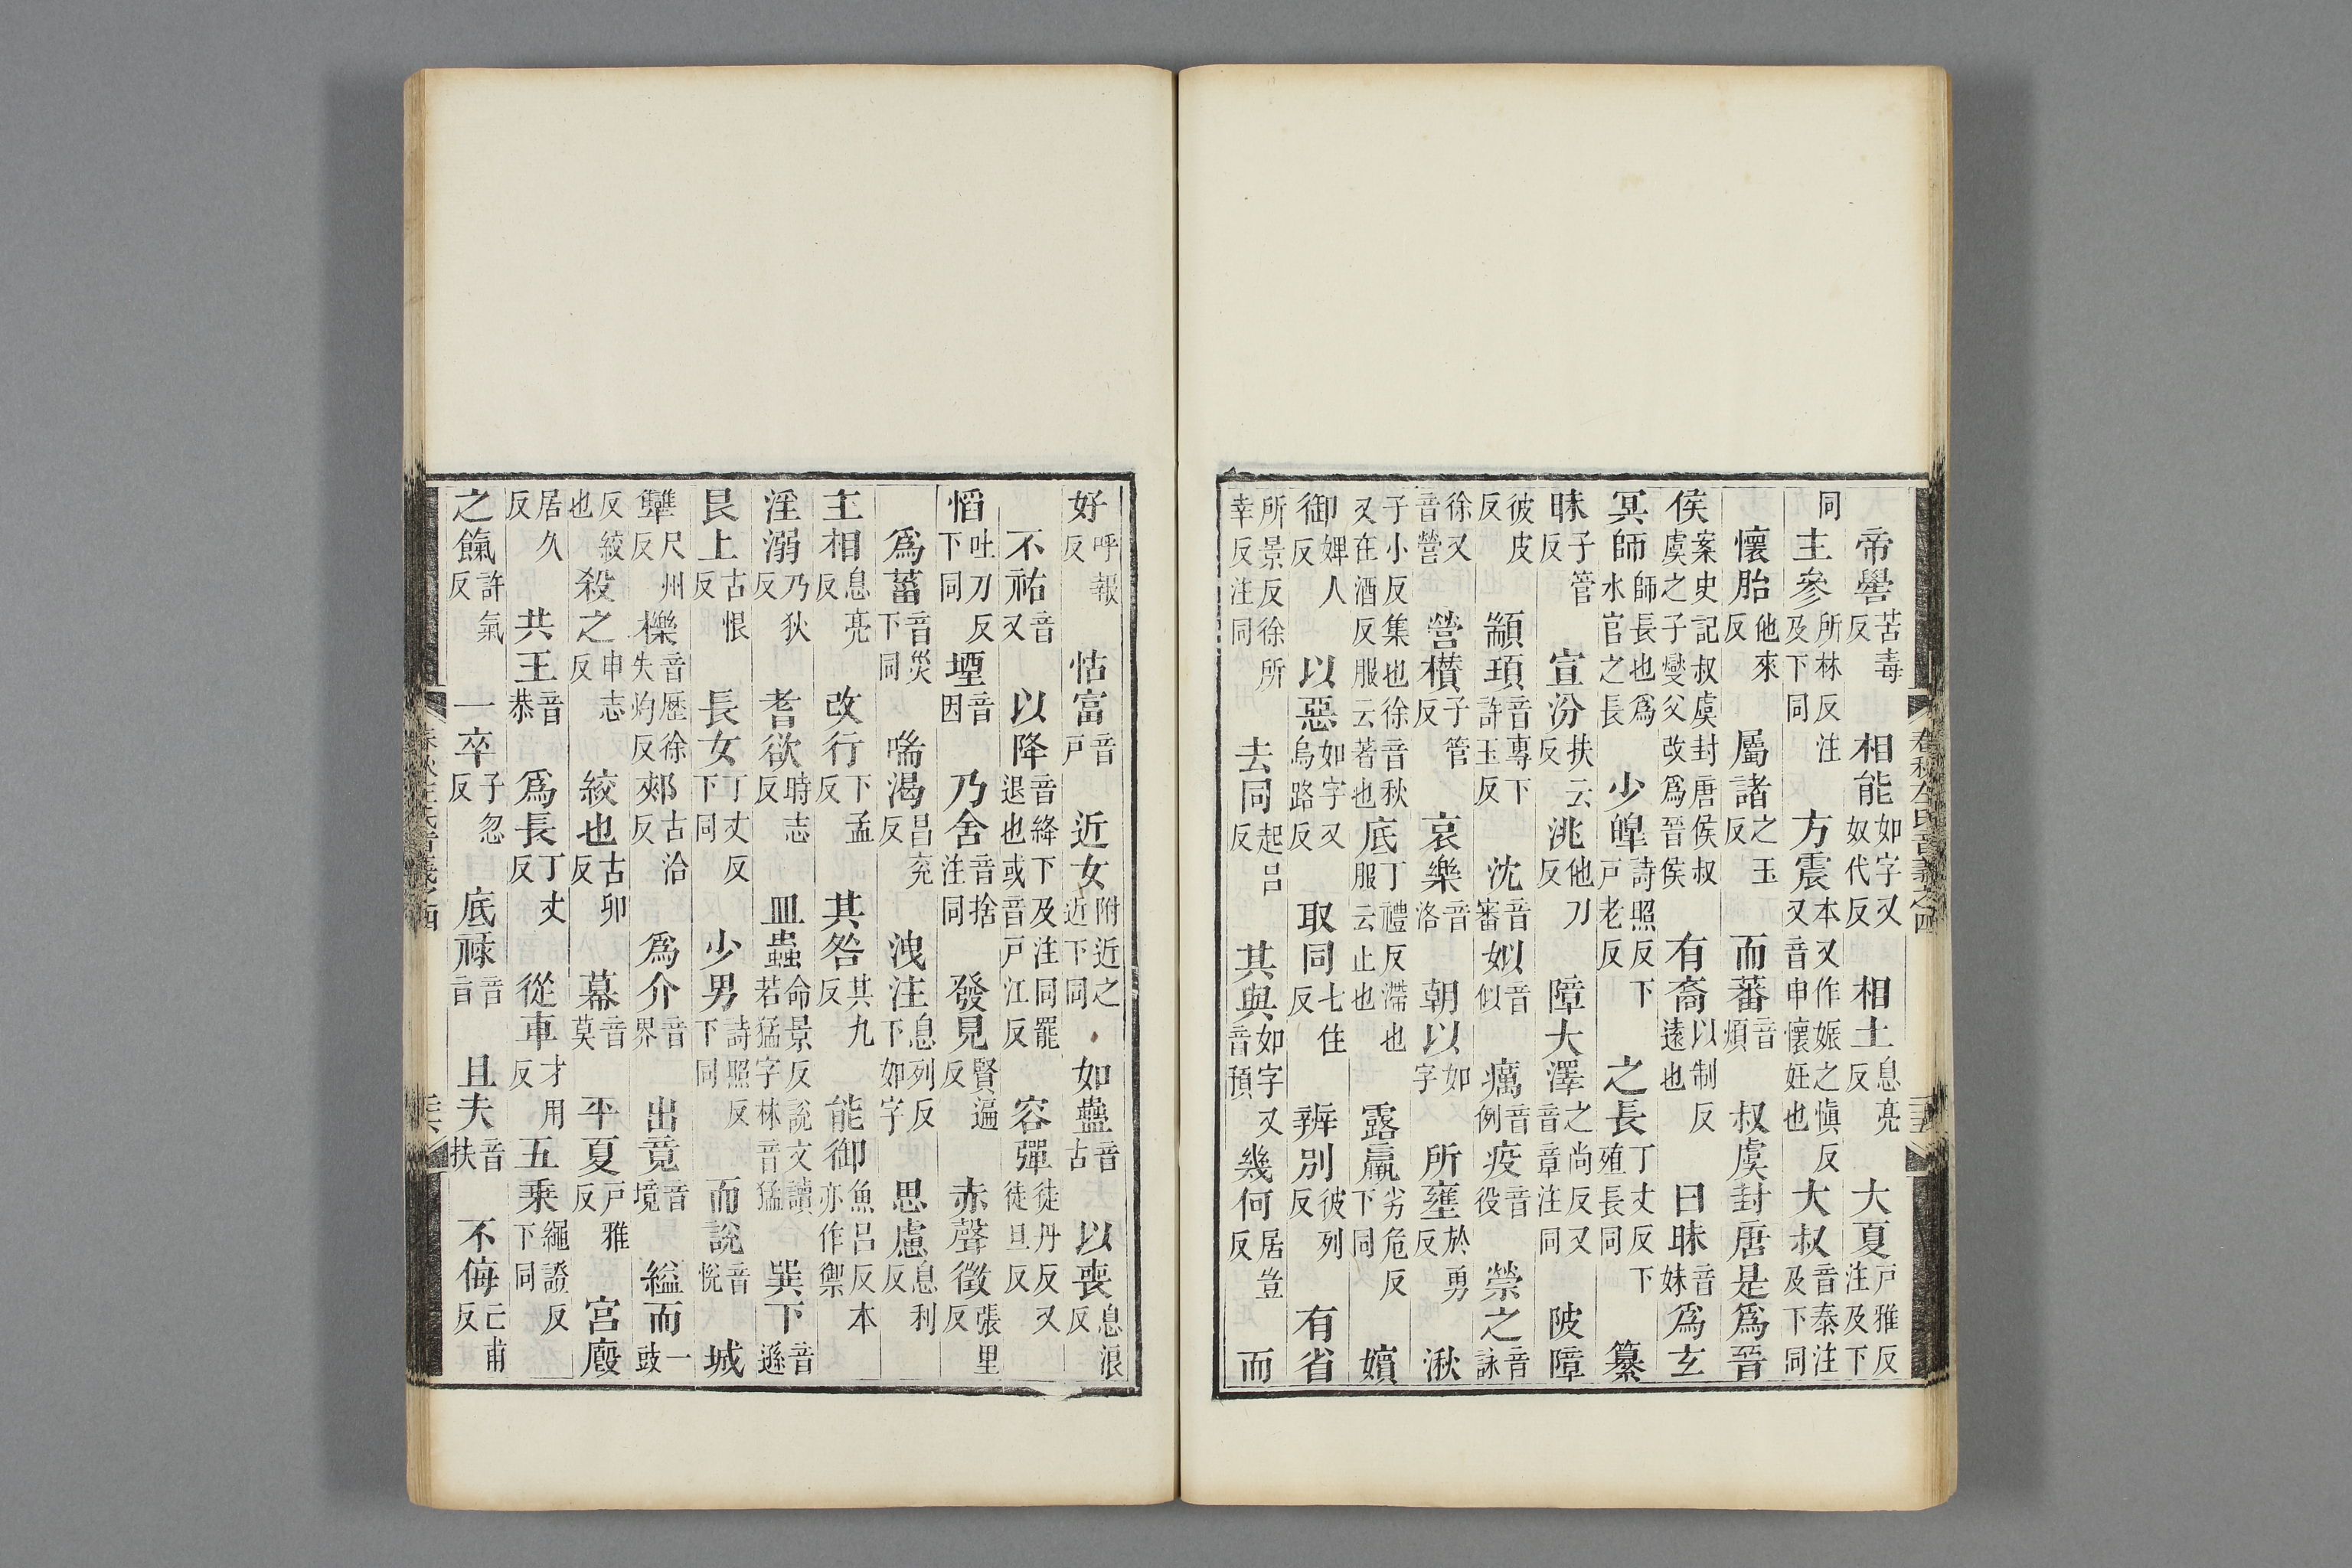 帝嚳苦毒反 相能如字又奴代反 相土息亮反 大夏戶雅反注及下
同 主參所林反注及下同 方震本又作娠之愼反又音申懷妊也 大叔音泰注及下同
懷胎他來反 屬諸之玉反 而蕃音煩 叔虞封唐是爲晉
侯案史記叔虞封唐侯叔虞之子燮父改爲晉侯 有裔以制反遠也 曰昧音妹 爲玄
冥師師長也爲水官之長 少皥詩照反下戶老反 之長丁丈反下殖長同 纂
昧子管反 宣汾扶云反 洮他刀反 障大澤之尚反又音章注同 陂障
彼皮反 顓頊音專下許玉反 沈音審 姒音似 癘音例 疫音役 禜之音詠
徐又音營 營欑子管反 哀樂音洛 朝以如字 所壅於勇反 湫
子小反集也徐音秋又在酒反服云著也 底丁禮反滯也服云止也 露羸劣危反下同 嬪
御婢人反 以惡如字又烏路反 取同七住反 辨別彼列反 有省
所景反徐所幸反注同 去同起呂反 其與如字又音預 幾何居豈反 而
春秋左氏音義之四
好呼報反 怙富音戶 近女附近之近下同 如蠱音古 以喪息浪反
不祐音又 以降音絳下及注同罷退也或音戶江反 容彈徒丹反又徒旦反
慆吐刀反下同 堙音因 乃舍音捨注同 發見賢遍反 赤聲徵張里反
爲菑音災下同 喘渴昌兖反 洩注息列反下如字 思慮息利反
主相息亮反 改行下孟反 其咎其九反 能御魚呂反本亦作禦
淫溺乃狄反 耆欲時志反 皿蟲命景反說文讀若猛字林音猛 巽下音遜
艮上古恨反 長女丁丈反下同 少男詩照反下同 而說音悅 城
犨尺州反 櫟音歷徐失灼反 郟古洽反 爲介音界 出竟音境 縊而一豉
反絞也 殺之申志反 絞也古卯反 幕音莫 平夏戶雅反 宮廏
居久反 共王音恭 爲長丁丈反 從車才用反 五乗繩證反下同
之餼許氣反 一卒子忽反 底祿音旨 且夫音扶 不侮亡甫反
春秋左氏音義之四